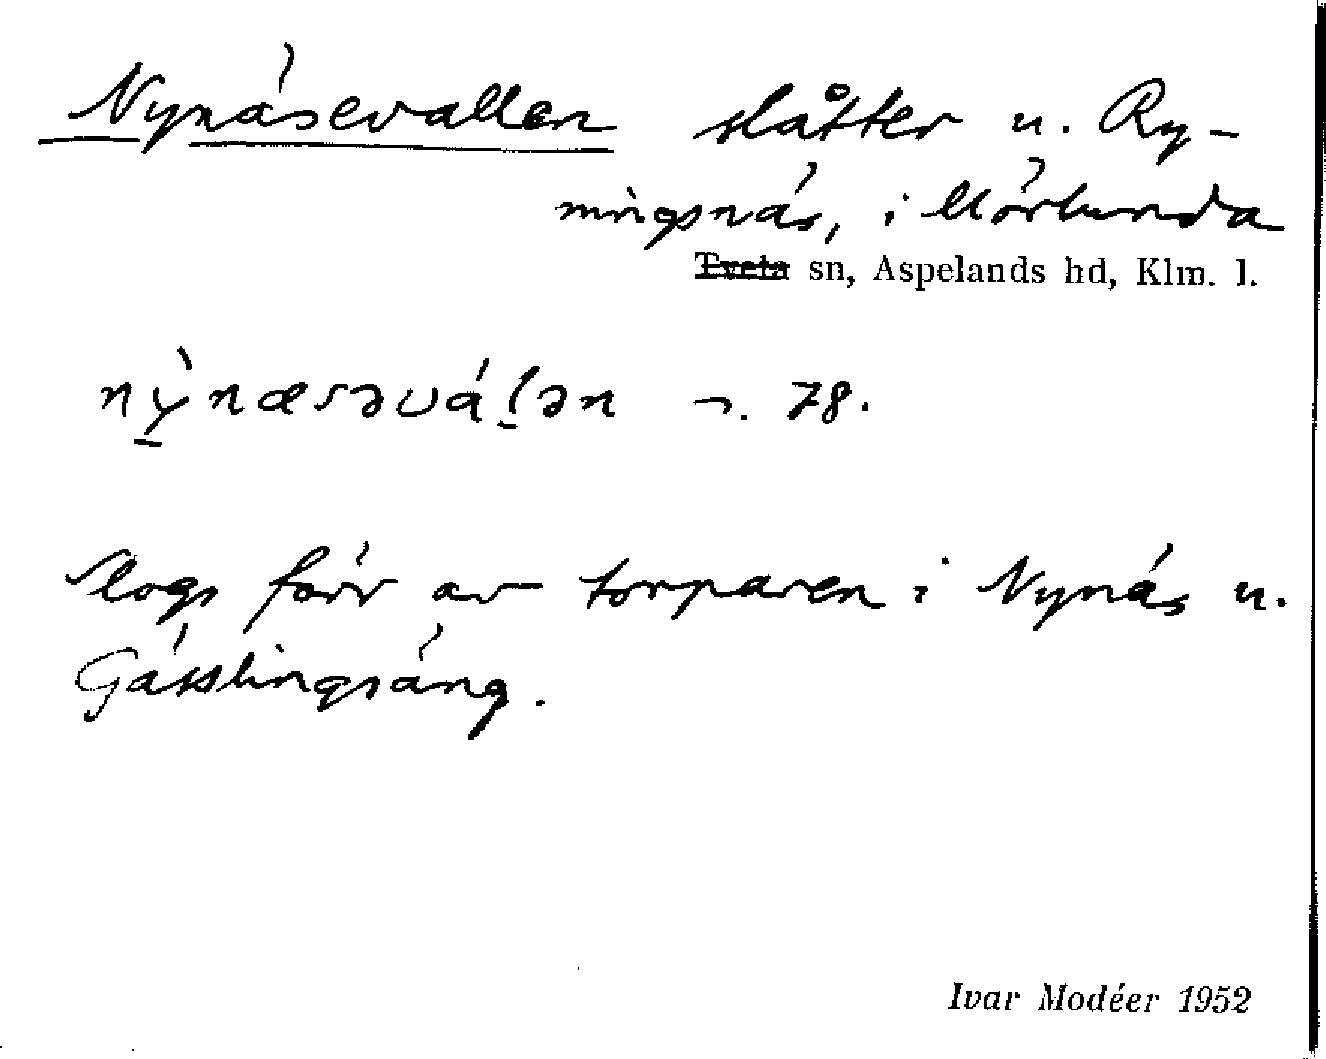 Nynäsevallen slåtter u. Ry-
mingsnäs, i Mörlunda
Tveta sn, Aspelands hd, Klm. l.
nỳnæsəválən ¬. 78.
Slogs förr av torparen i Nynäs u.
Gässlingsäng.
Ivar Modéer 1952